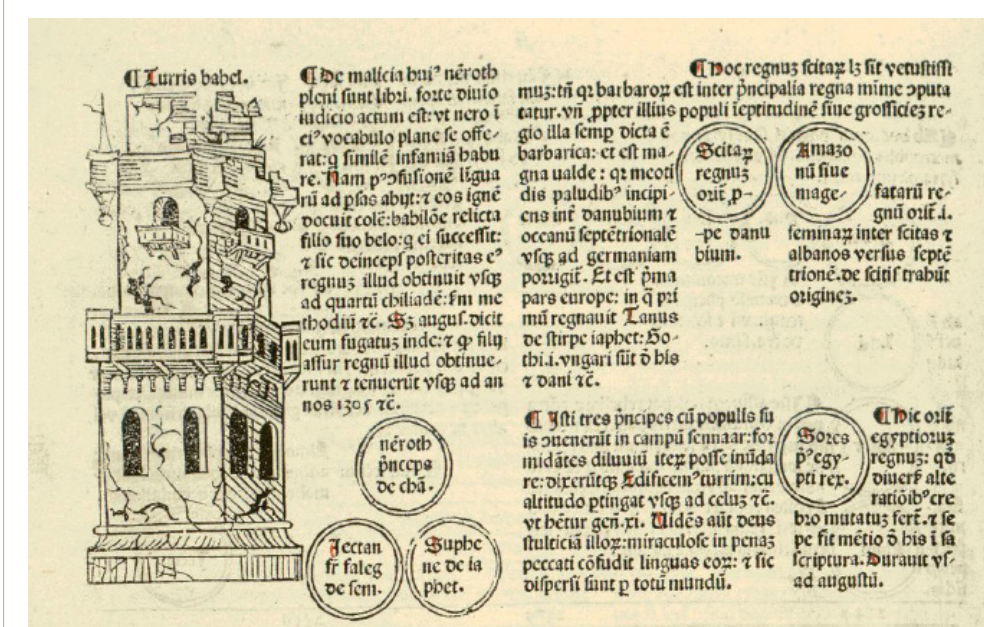 ¶Turris babel.
¶De malicia huiꝰ nēroth
pleni sunt libri. forte diuīo
iudicio actum est: vt nero ī
eiꝰ vocabulo plane se offe-
rat: q̄ similē infamiā habu
re. Nam pꝰ ↄfusionē līgua
rū ad ꝑsas abijt: ⁊ eos ignē
docuit colē: babilōe relicta
filio suo belo: q̄ ei successit:
⁊ sic deinceps posteritas eꝰ
regnuꝫ illud obtinuit vsqꝫ
ad quartū chiliadē: ẜm me
thodiū ⁊c̄. Sꝫ augus. dicit
eum fugatuꝫ inde: ⁊ ꝙ filij
assur regnū illud obtinue-
runt ⁊ tenuerūt vsqꝫ ad an
nos 1305 ⁊c̄.
nēroth
p̄nceps
de chā.
Jectan
fr̄ faleg
de sem.
Suphe
ne de ia
phet.
¶Hoc regnuꝫ scitaꝝ lꝫ sit vetustissī
muꝫ: tn̄ qꝛ barbaroꝝ est inter p̄ncipalia regna mīme ↄputa
tatur. vn̄ ꝓpter illius populi īeptitudinē siue grossicieꝫ re-
gio illa semꝑ dicta ē
barbarica: et est ma-
gna valde: qꝛ meoti
dis paludibꝰ incipi-
ens int̄ danubium ⁊
oceanū septētrionalē
vsqꝫ ad germaniam
porrigit̄. Et est p̄ma
pars europe: in q̄ pri
mū regnauit Tanus
de stirpe iaphet: Go-
thi .i. vngari sūt ō his
⁊ dani ⁊c̄.
Scitaꝝ
regnuꝫ
orit̄ ꝓ-
-pe danu
bium.
Amazo
nū siue
mage-
fatarū re-
gnū orit̄ .i.
feminaꝝ inter scitas ⁊
albanos versus septē
trionē. de scitis trahūt
origineꝫ.
¶Isti tres p̄ncipes cū populis su
is ↄuenerūt in campū sennaar: for
midātes diluuiū iteꝝ posse inūda
re: dixerūtqꝫ Edificemꝰ turrim: cuꝰ
altitudo ꝑtingat vsqꝫ ad celuꝫ ⁊c̄.
vt hētur gen̄. xi. Uidēs aūt deus
stulticiā illoꝝ: miraculose in penaꝫ
peccati cōfudit linguas eoꝝ: ⁊ sic
dispersi sunt ꝑ totū mundū.
Sores
p̄ꝰ egy-
pti rex.
¶Hic orit̄
egyptioruꝫ
regnuꝫ: qd̄
diuers̄ alte
ratiōibꝰ cre
bro mutatuꝫ fert̄. ⁊ se
pe fit mētio ō his ī sa
scriptura. Durauit vs-
ad augustū.